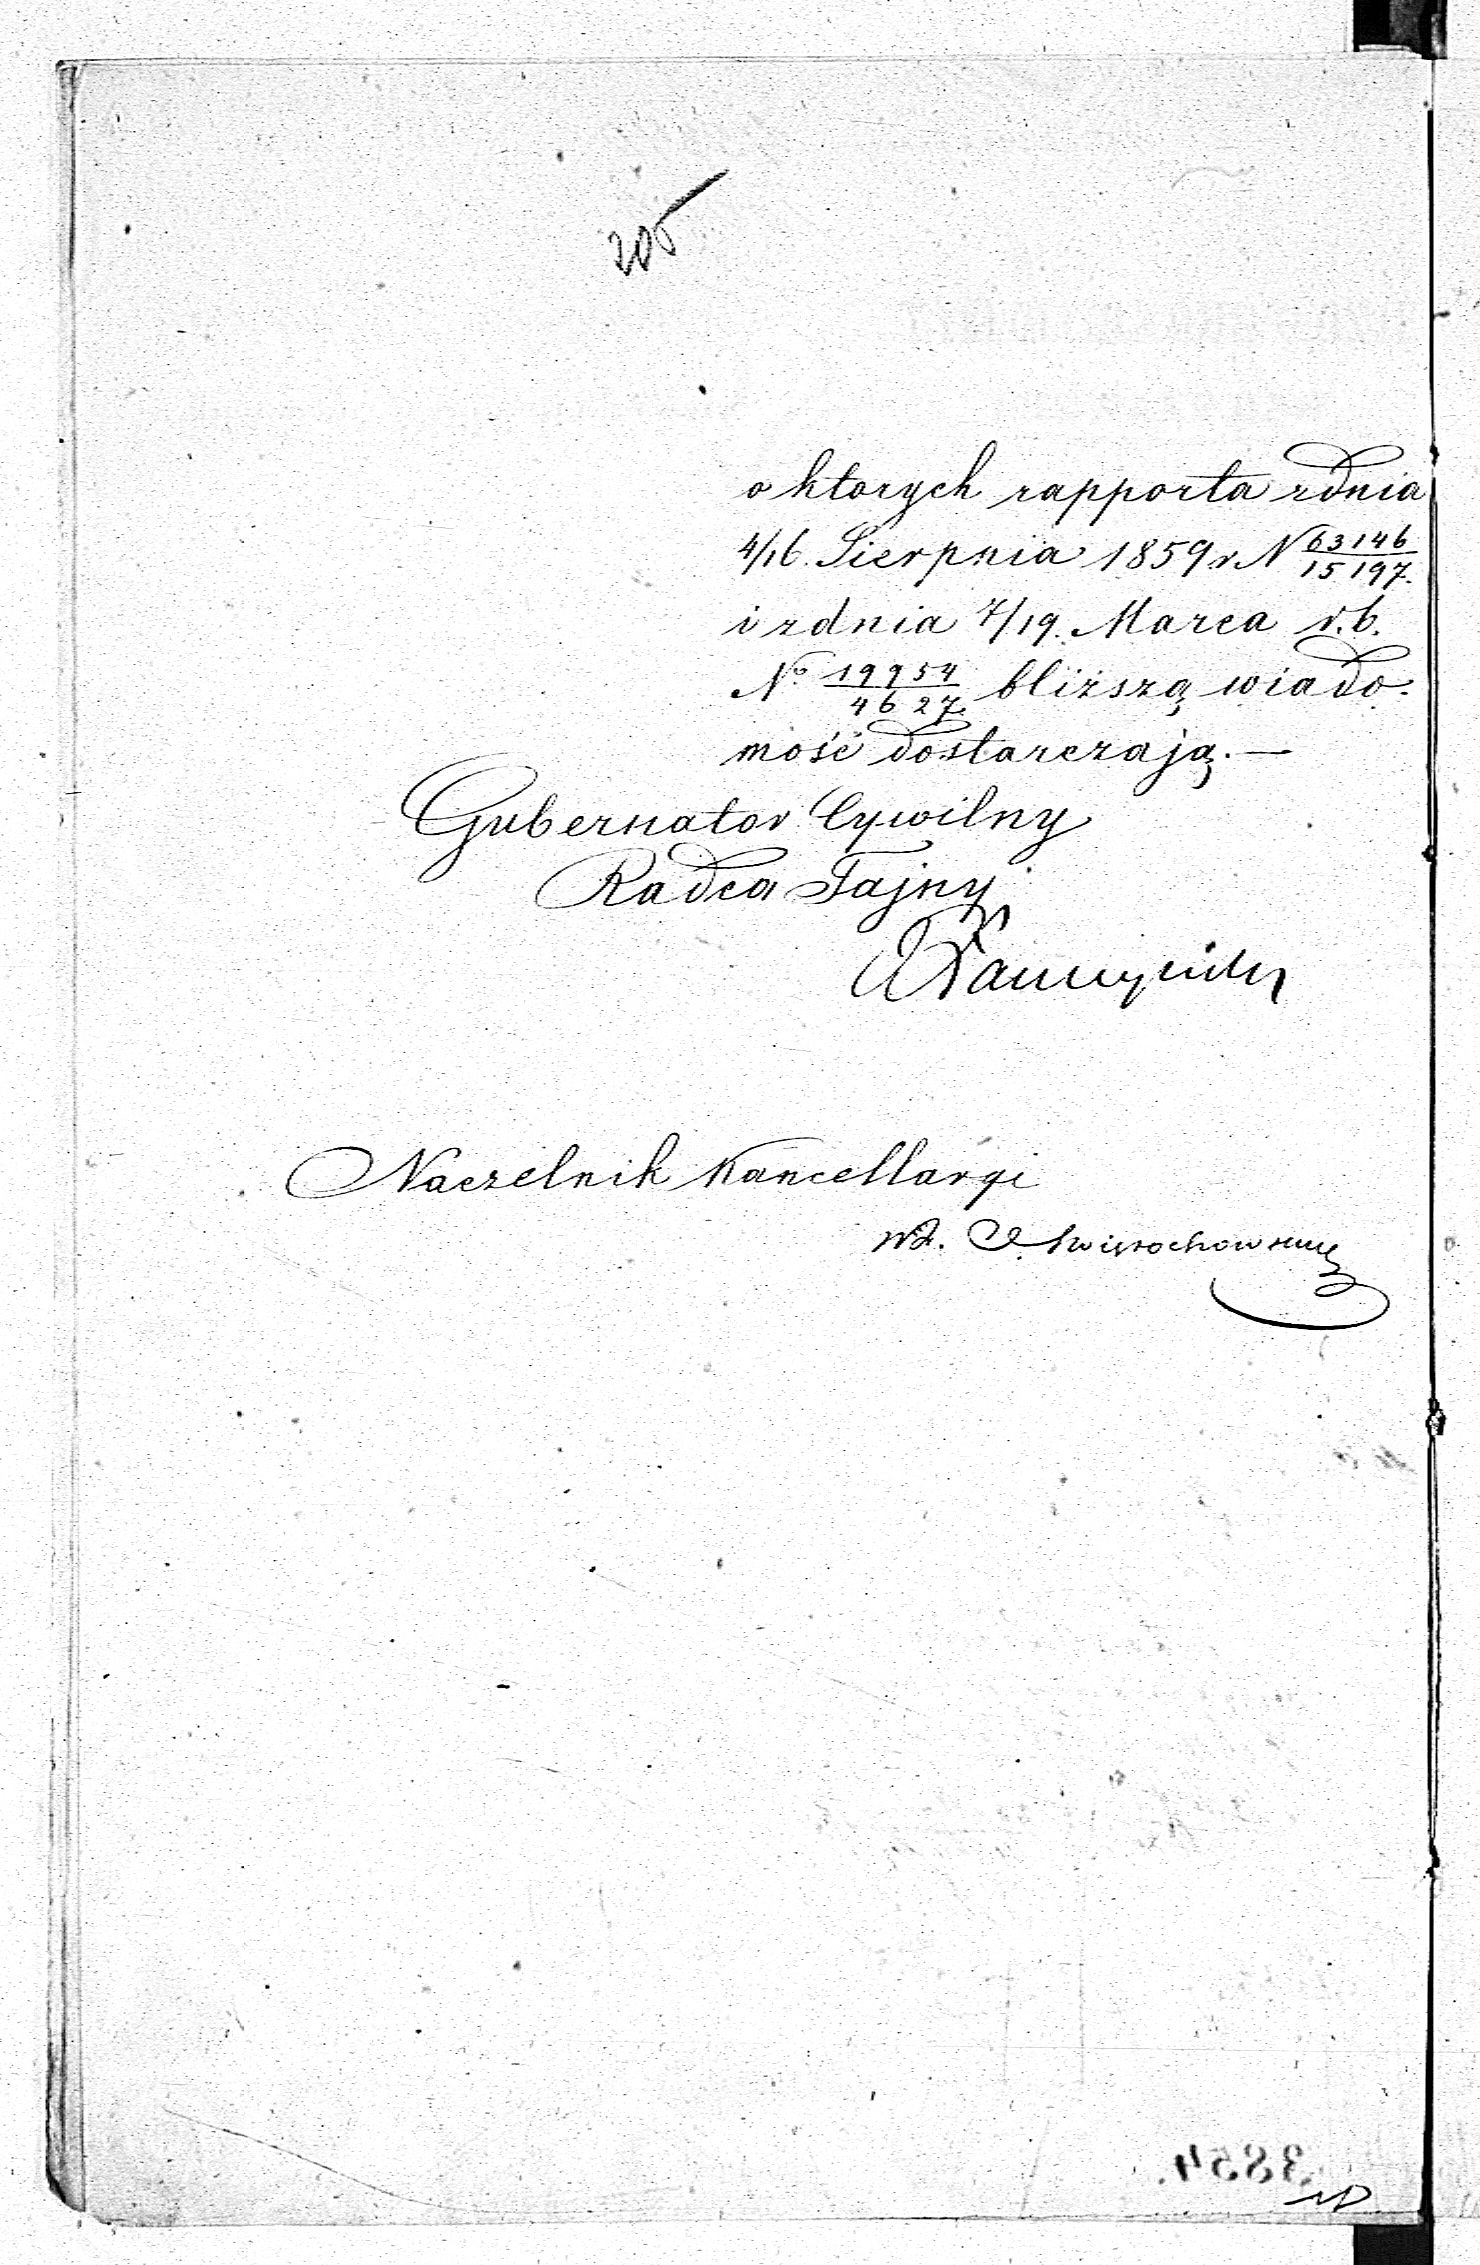 205
o ktorych rapporta zdnia
4/16. Sierpnia 1859 r. N 63146/15197.
i zdnia 7/19. Marca r. b.
No. 19954/4627. bliższą wiado-
mość dostarczają. —
Gubernator Cywilny
Radca Tajny
Naczelnik Kancellaryi
3854.